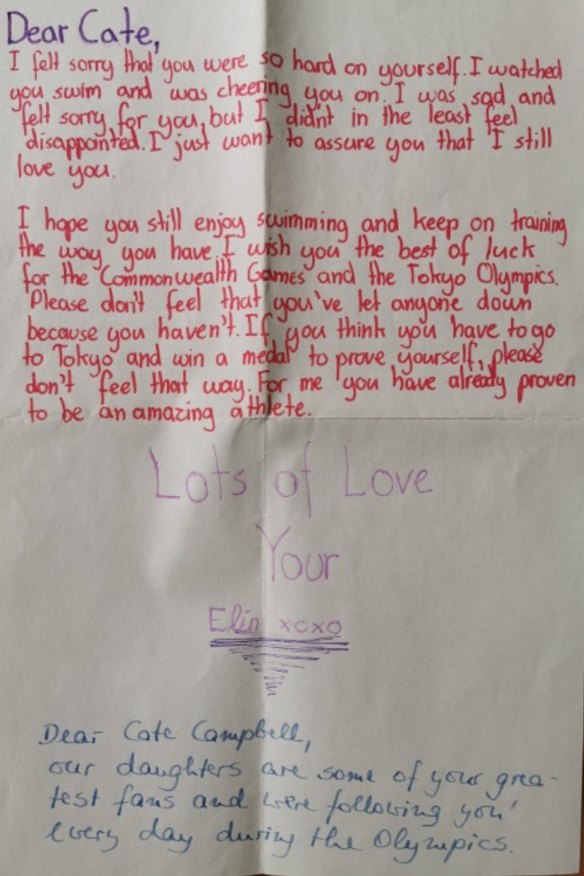 Dear Cate,
I felt sorry that you were so hard on yourself. I watched
you swim and was cheering you on. I was sad and
felt sorry for you, but I didn't in the least feel
disappointed. I just want to assure you that I still
love you.
I hope you still enjoy swimming and keep on training
the way you have. I wish you the best of luck
for the Commonwealth Games and the Tokyo Olympics.
Please don't feel that you've let anyone down
because you haven't. If you think you have to go
to Tokyo and win a medal to prove yourself, please
don't feel that way. For me you have already proven
to be an amazing athlete.
Lots of Love
Your
Elin xoxo
Dear Cate Campbell,
our daughters are some of your grea-
test fans and were following you
every day during the Olympics.